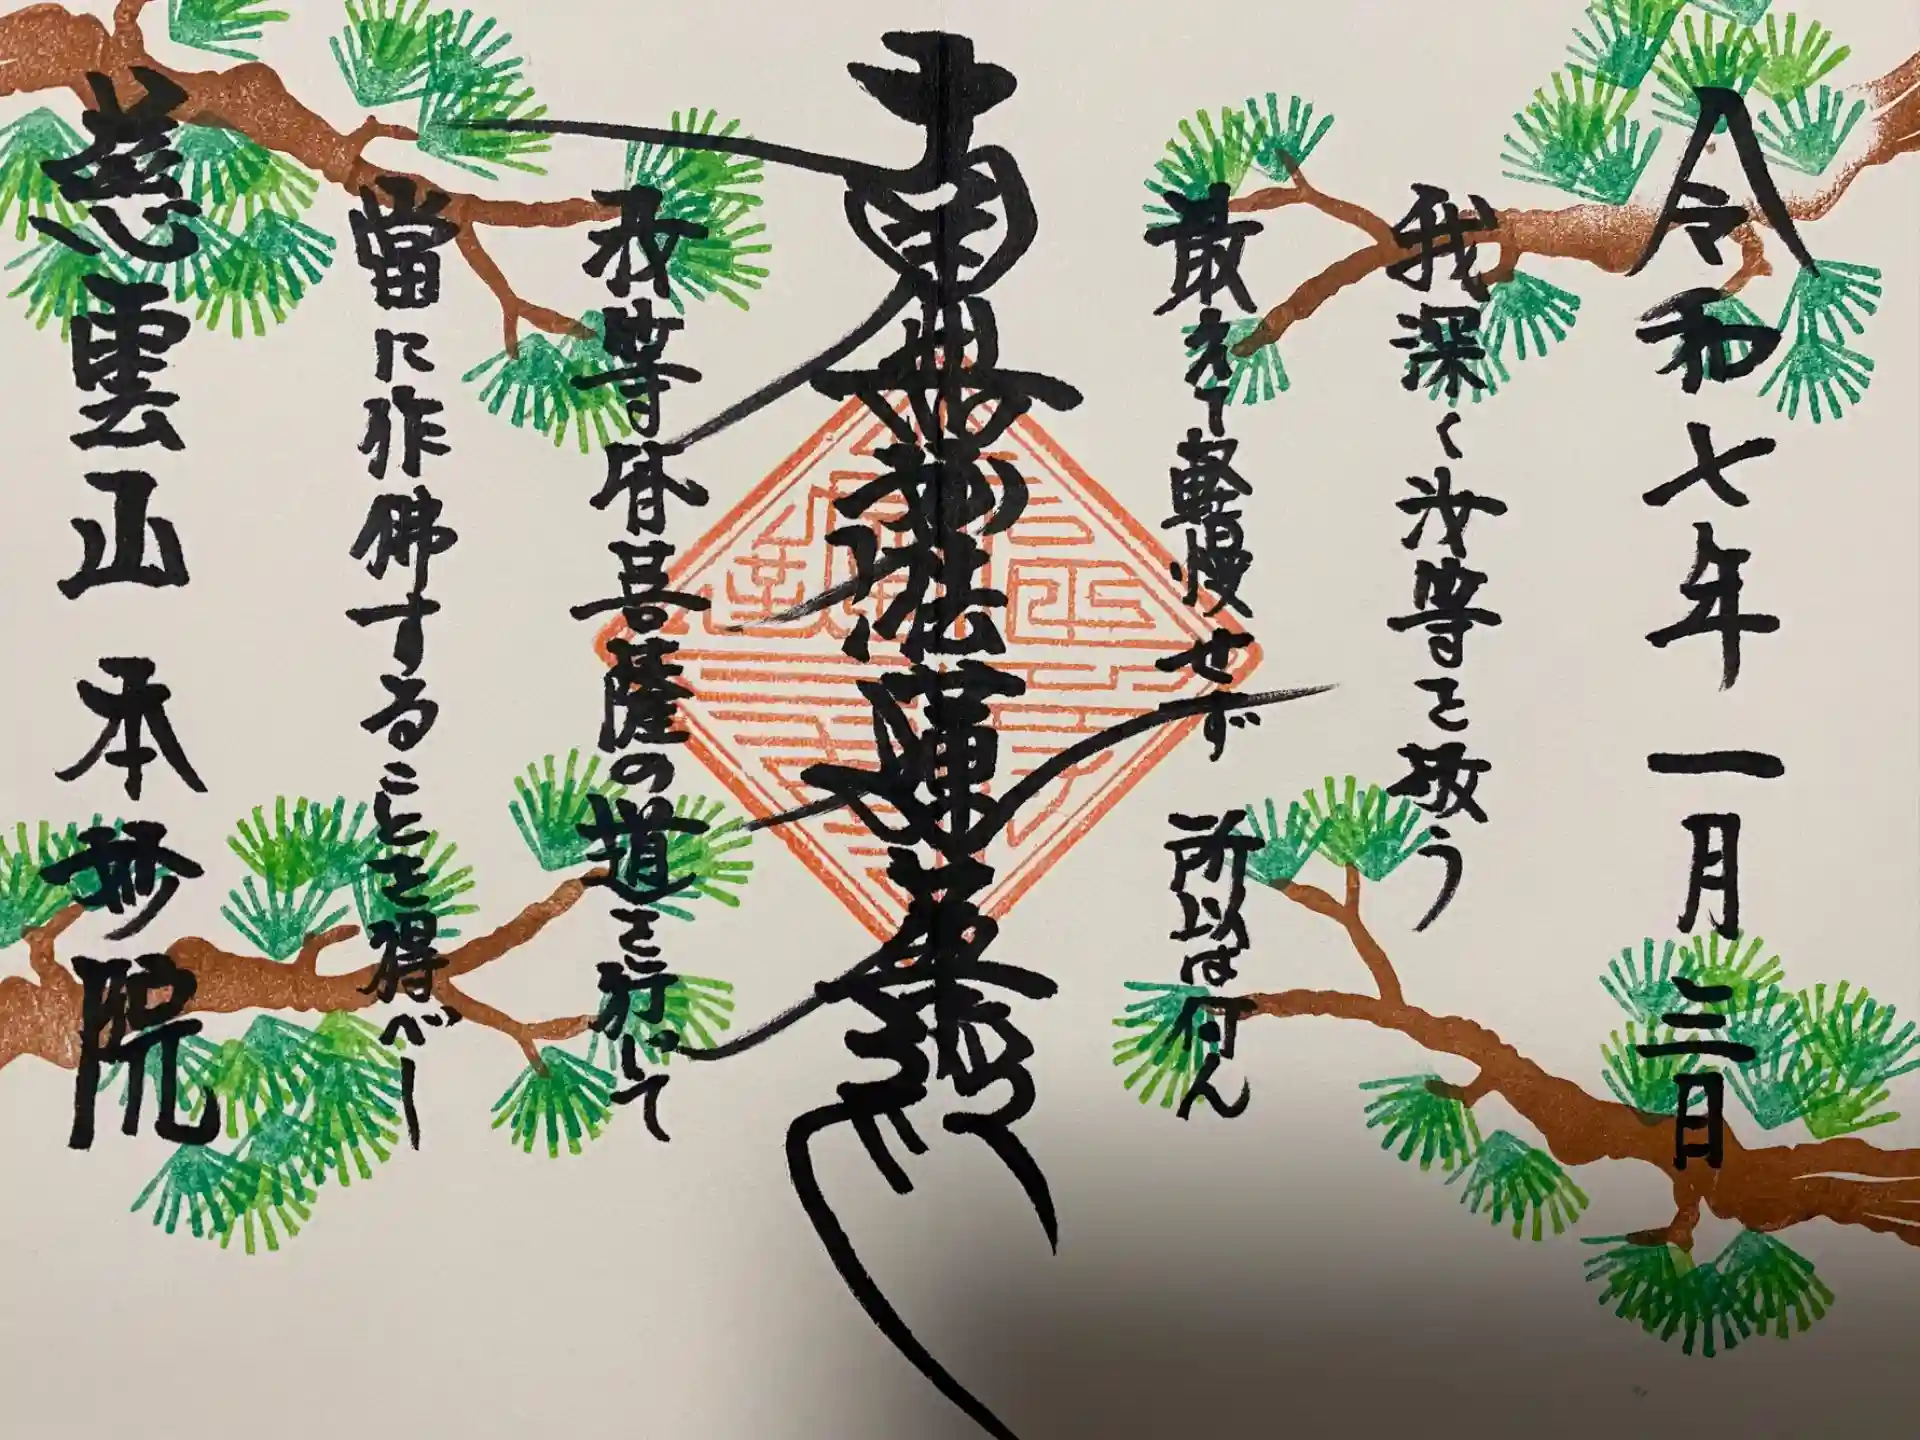 令和七年 一月三日
我深く汝等を敬う
敢えて軽慢せず 所以は何ん
南無妙法蓮華経
汝等皆菩薩の道を行じて
當に作佛することを得べし
慈雲山 本妙院